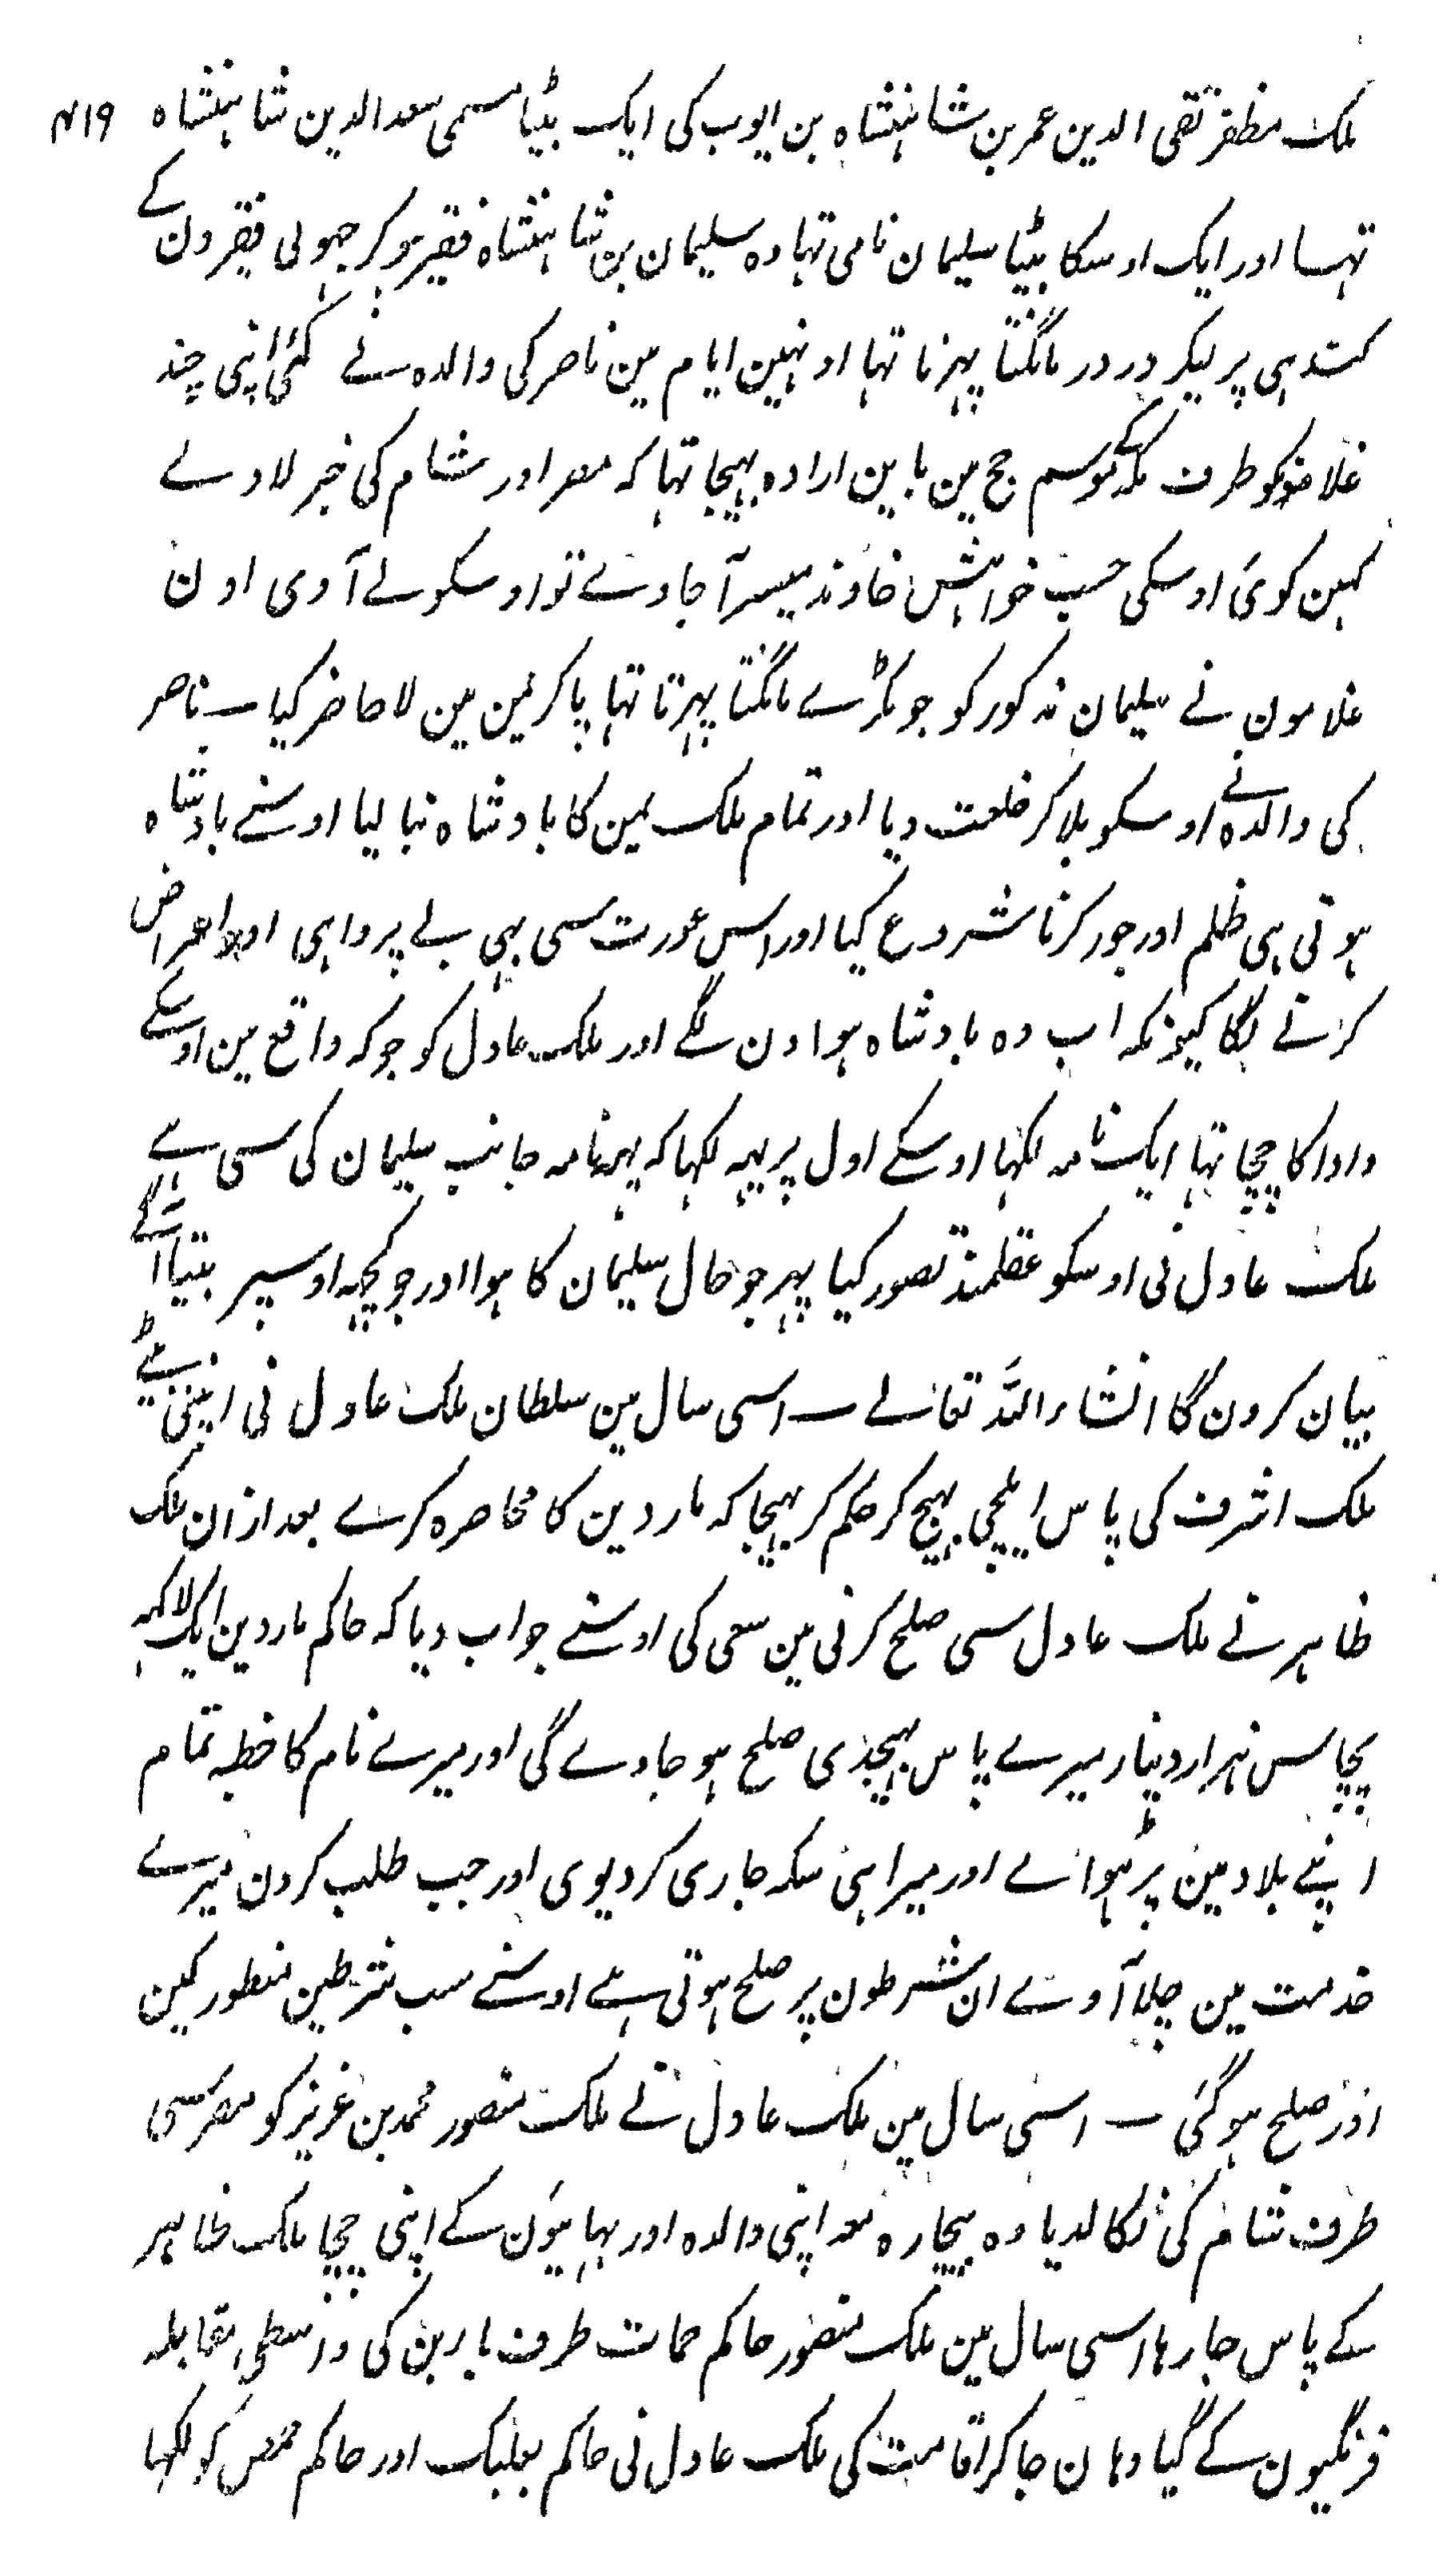 ملک مظفر تقی الدین عمر بن شاہنشاہ بن ایوب کی ایک بیٹا مسمی سعد الدین شاہنشاہ ۴۱۹
تہا اور ایک اوسکا بیٹا سلیمان نامی تہا وہ سلیمان بن شاہنشاہ فقیر ہو کر جہولی فقیرون کے
کندہی پر لیکر در در مانگتا پہرتا تہا اونہین ایام مین ناصر کی والدہ نے کئی اپنی چند
غلامونکو طرف مکہ کے موسم حج مین باین ارادہ بہیجا تہا کہ مصر اور شام کی خبر لاوے
کہین کوئی اوسکی حسب خواہش خاوند میسر آجاوے تو اوسکو لے آوی اون
غلامون نے سلیمان مذکور کو جو ٹکڑے مانگتا پہرتا تہا پاکر یمن مین لا حاضر کیا ۔ ناصر
کی والدہ نے اوسکو بلا کر خلعت دیا اور تمام ملک یمن کا بادشاہ بنا لیا اوسنے بادشاہ
ہوتی ہی ظلم اور جور کرنا شروع کیا اور اس عورت سی بہی بے پرواہی اور اعراض
کرنے لگا کیونکہ اب وہ بادشاہ ہوا دن لگے اور ملک عادل کو جو کہ واقع مین اوسکے
دادا کا چچا تہا ایک نامہ لکہا اوسکے اول پر یہہ لکہا کہ یہہ نامہ جانب سلیمان کی سی ہے
ملک عادل نی اوسکو عقلمند تصور کیا پہر جو حال سلیمان کا ہوا اور جو کچہہ اوسپر بیتا آگے
بیان کرون گا انشاء اللہ تعالے ۔ اسی سال مین سلطان ملک عادل نی اپنی بیٹے
ملک اشرف کی پاس ایلچی بہیج کر حکم کر بہیجا کہ ماردین کا محاصرہ کرے بعد ازان ملک
ظاہر نے ملک عادل سی صلح کرنی مین سعی کی اوسنے جواب دیا کہ حاکم ماردین ایک لاکہہ
پچاس ہزار دینار میرے پاس بہیجدی صلح ہو جاوے گی اور میرے نام کا خطبہ تمام
اپنے بلاد مین پڑہوائے اور میرا ہی سکہ جاری کر دیوی اور جب طلب کرون میرے
خدمت مین چلا آوے ان شرطون پر صلح ہوتی ہے اوسنے سب شرطین منظور کین
اور صلح ہو گئی ۔ اسی سال مین ملک عادل نے ملک منصور محمد بن عزیز کو مصر سی
طرف شام کی نکالدیا وہ بیچارہ معہ اپنی والدہ اور بہایئون کے اپنی چچا ملک ظاہر
کے پاس جا رہا اسی سال مین ملک منصور حاکم حمات طرف بارین کی واسطی مقابلہ
فرنگیون کے گیا وہان جا کر اقامت کی ملک عادل نی حاکم بعلبک اور حاکم حمص کو لکہا